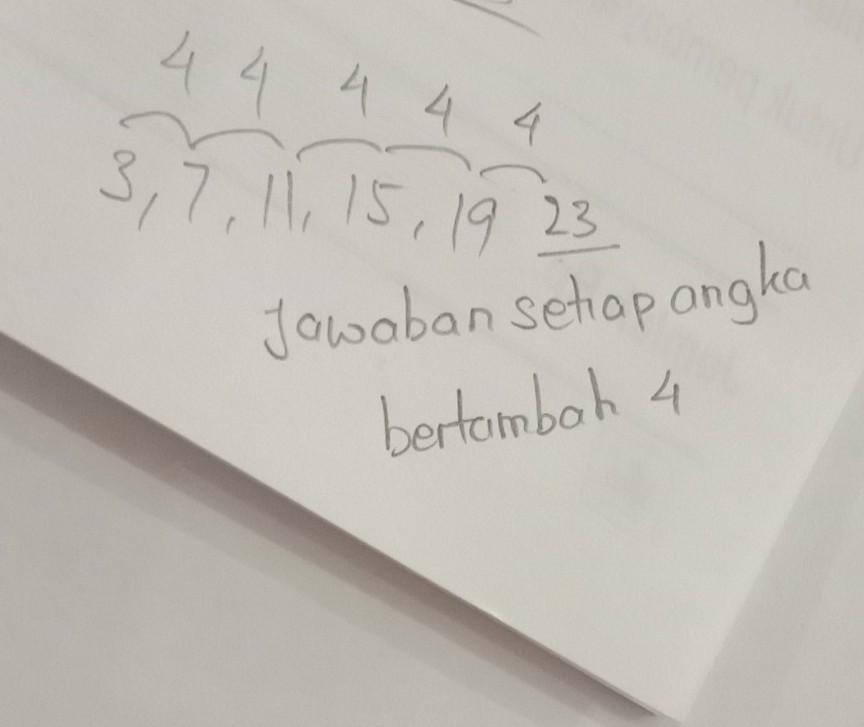 4 4 4 4 4
3, 7, 11, 15, 19 23
Jawaban setiap angka
bertambah 4